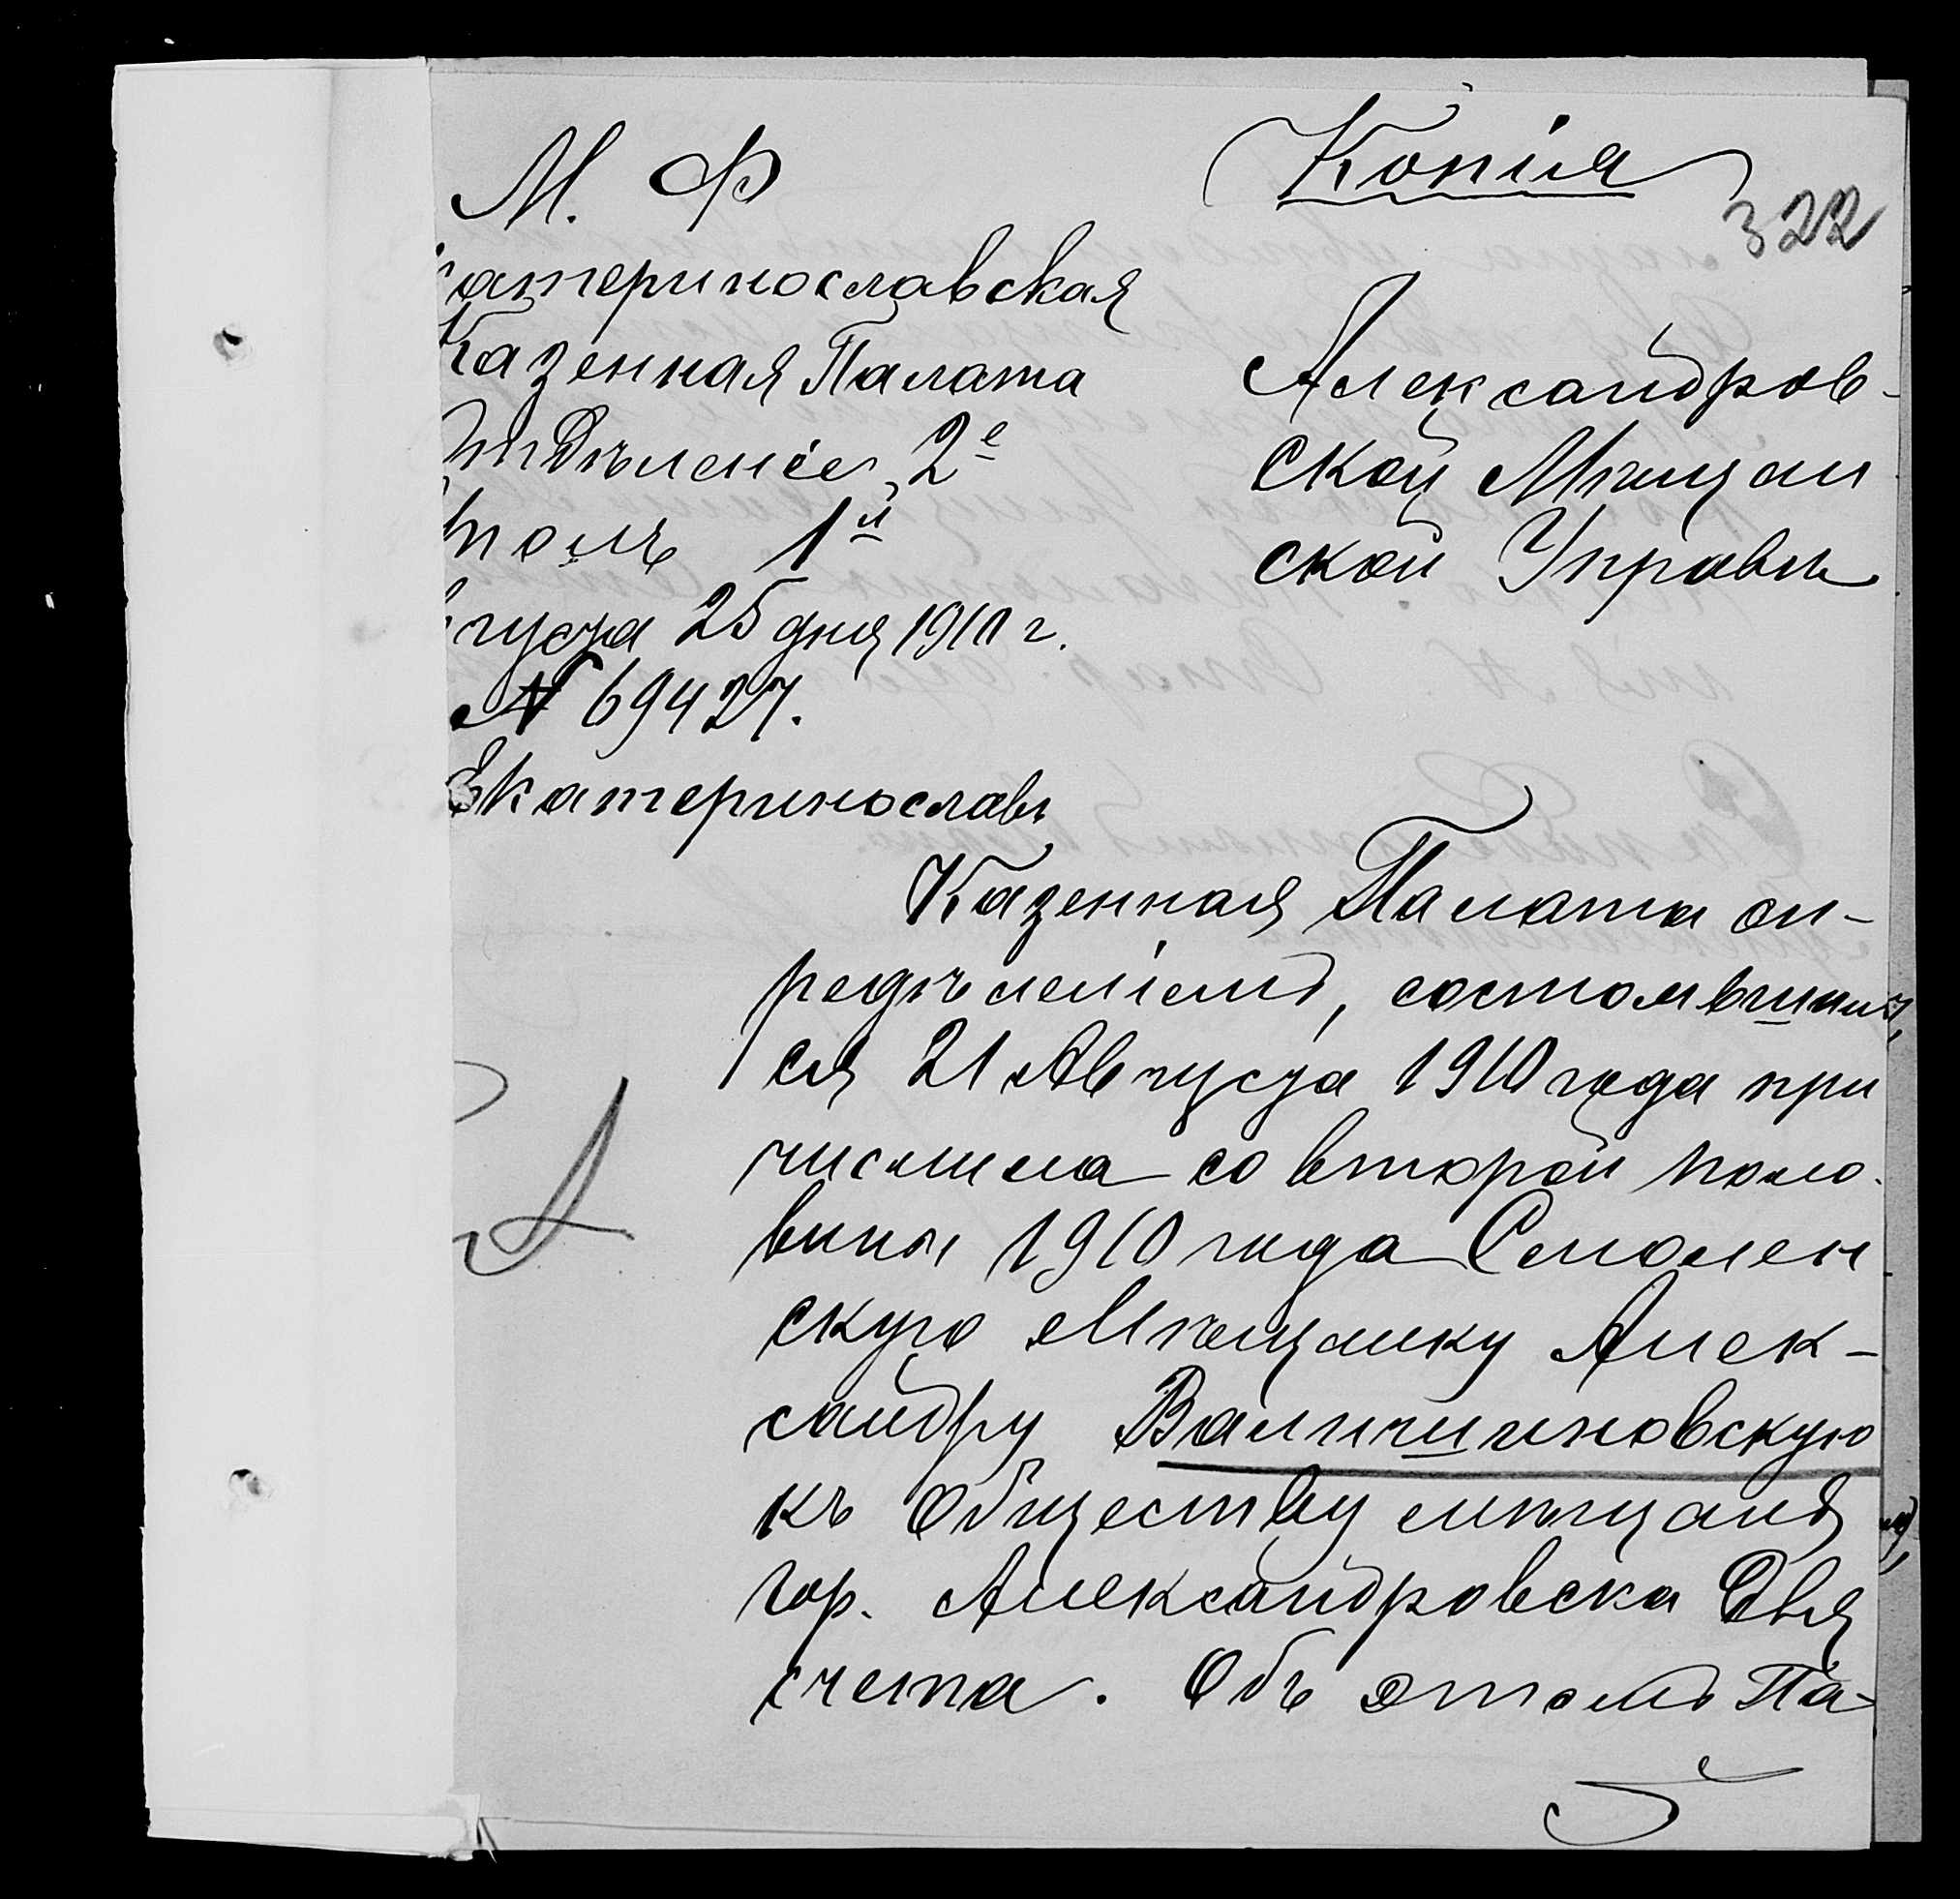 Копія
322
М. Ф
катеринославская
Казенная Палата
Отдѣленіе 2е
Столъ 1й
вгуста 25 дня 1910 г.
№ 69427.
Екатеринославъ
Александров-
ской Мѣщан
ской Управѣ
Казенная Палата оп-
редѣленіемъ, состоявшим
ся 21 Августа 1910 года при
числила со второй поло-
вины 1910 года Смолен
скую Мѣщанку Алек-
сандру
къ Обществу мѣщанъ
гор. Александровска для
счета. Объ этомъ Па-